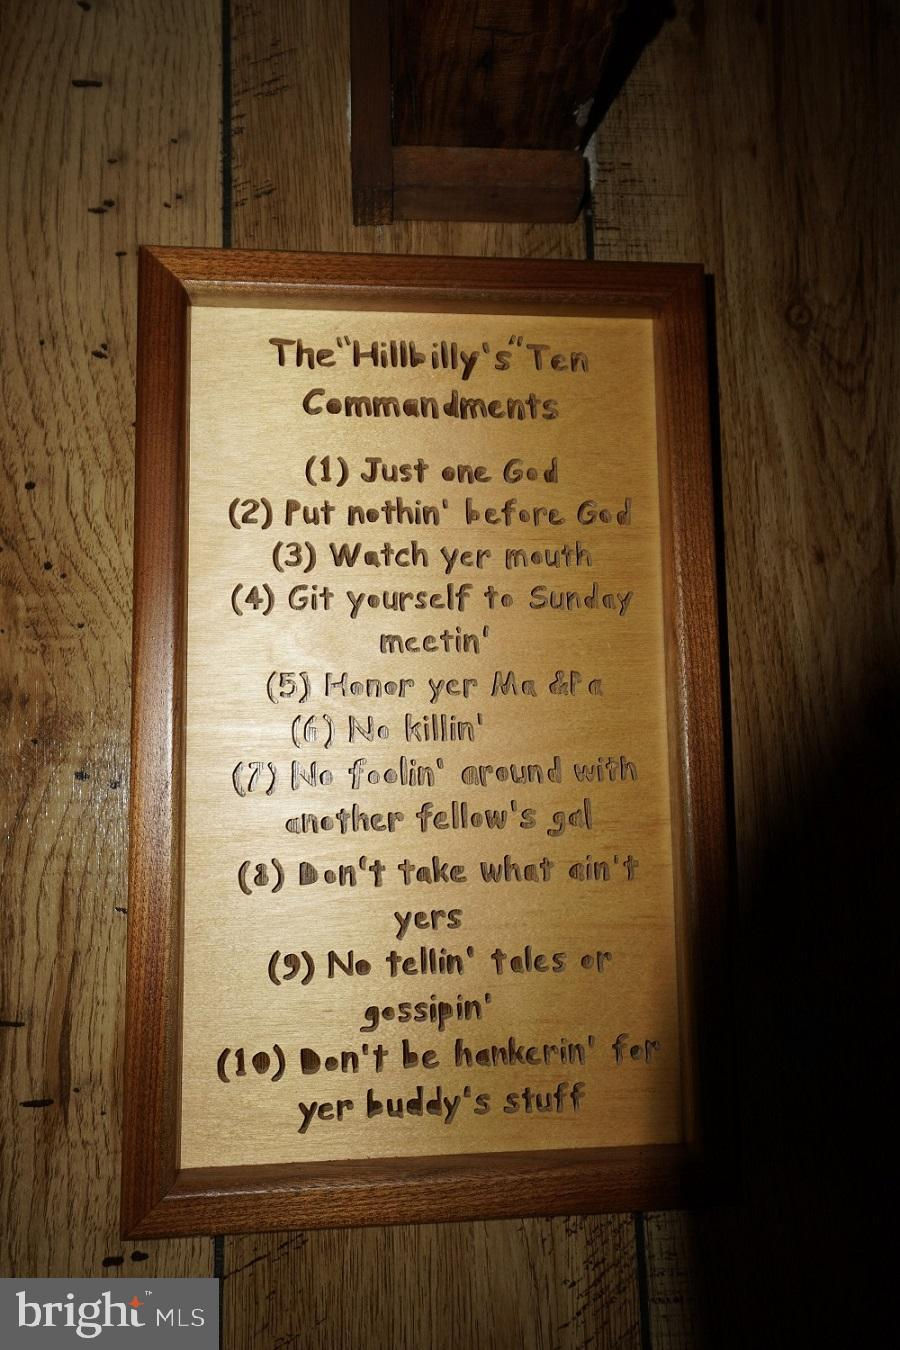 The "Hillbilly's" Ten
Commandments
(1) Just one God
(2) Put nothin' before God
(3) Watch yer mouth
(4) Git yourself to Sunday
meetin'
(5) Honor yer Ma & Pa
(6) No killin'
(7) No foolin' around with
another fellow's gal
(8) Don't take what ain't
yers
(9) No tellin' tales or
gossipin'
(10) Don't be hankerin' for
yer buddy's stuff
bright™ MLS